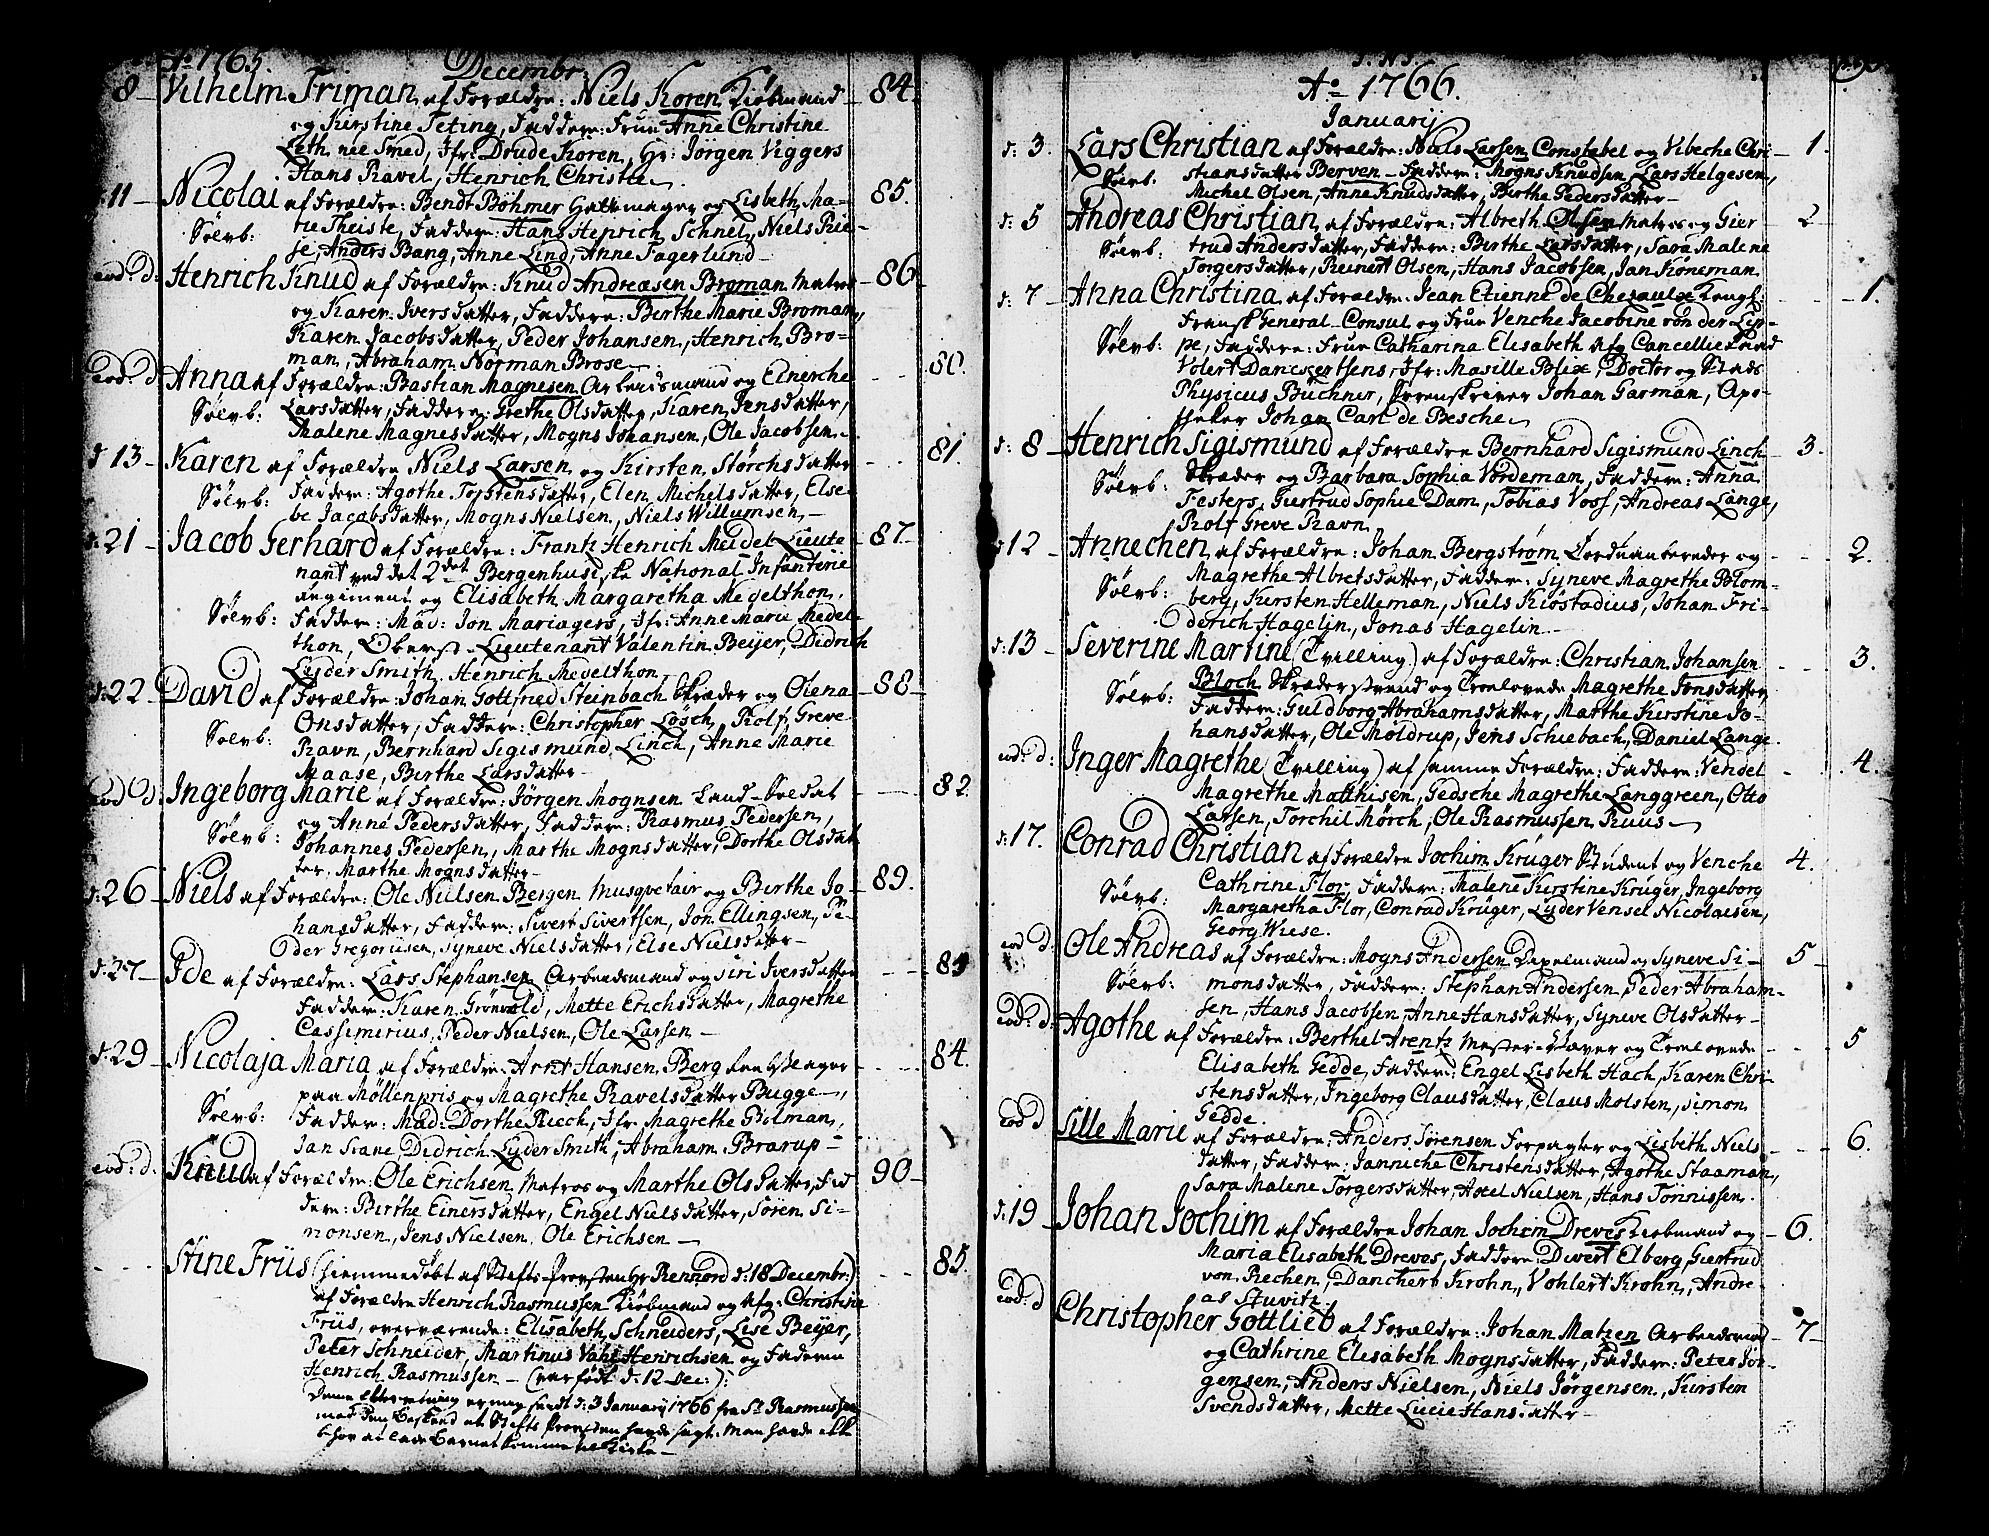 Ao 1765. Decembr:
8 – Vilhelm Friman af Forældre: Niels Koren Kiøbmand – 84.
og Kirstine Teting, Faddere: Frue Anne Christine
Leth née Smed, Jfr: Drude Koren, Hr: Jörgen Viggers
Hans Ravel, Henrich Christie
d: 11 – Nicolai af Forældre: Bendt Böhmer Hattemager og Lisbeth Ma- 85.
Sølvb: trie Theiste, Faddere: Hans Henrich Schnel, Niels Rie-
se, Anders Bang, Anne Lind, Anne Fagerlund –
eod: d: Henrich Knud af Forældre: Knud Andreasen Broman Matros – 86
og Karen Iversdatter, Faddere: Birthe Marie Broman,
Karen Jacobsdatter, Peder Johansen, Henrich Bro-
man, Abraham Norman Brose
eod: d: Anna af Forældre: Bastian Magnesen Arbeidsmand og Einerche – 80.
Sølvb: Larsdatter, Faddere: Grethe Olsdatter, Karen Jensdatter,
Malene Magnesdatter, Mogns Johansen, Ole Jacobsen
d 13 – Karen af Forældre Niels Larsen og Kirsten Störchsdatter – 81.
Sølvb: Faddere: Agothe Torstensdatter, Elen Michelsdatter, Else-
be Jacobsdatter, Mogns Nielsen, Niels Willumsen –
d: 21 – Jacob Gerhard af Forældre: Frantz Henrich Meidel Lieute 87.
nant ved det 2det Bergenhusiske National Infanterie
Regiment og Elisabeth Margaretha Medelthon,
Sølvb: Faddere: Mad: Jon Mariagers, Jfr: Anne Marie Medel-
thon, Oberst-Lieutenant Valentin Beijer, Didrich
Lyder Smith, Henrich Medelthon
d: 22 – David af Forældre: Johan Gottfried Steinbach Skræder og Olena – 88 –
Sølvb: Onsdatter, Faddere: Christopher Lösch, Rolf Greve
Ravn, Bernhard Sigismund Linch, Anne Marie
Maase, Birthe Larsdatter –
eod d: Ingeborg Marie af Forældre: Jörgen Mognsen Land-Soldat – 82.
Sølvb: og Anne Pedersdatter, Faddere: Rasmus Pedersen,
Johannes Pedersen, Marthe Mognsdatter, Dorthe Olsdat
ter, Marthe Mognsdatter –
d: 26 – Niels af Forældre: Ole Nielsen Bergen Musqvetair og Birthe Jo- 89.
hansdatter, Faddere: Sivert Sivertsen, Jon Ellingsen, Pe-
der Gregoriisen, Syneve Nielsdatter, Else Nielsdatter –
d: 27 – Ide af Forældre: Lars Stephansen Arbeidsmand og Siri Iversdatter – 83
Faddere: Karen Grönvold, Mette Erichsdatter, Magrethe
Cassimerius, Peder Nielsen, Ole Larsen –
d: 29 – Nicolaja Maria af Forældre: Arnt Hansen Berg – 84.
paa Møllenpris og Magrethe Ravelsdatter Bugge –,
Sølvb: Faddere: Mad: Dorthe Riech, Jfr Magrethe Bilman,
Jan Svane, Didrich Lyder Smith, Abraham Brarup –
eod: d: Knud af Forældre: Ole Erichsen Matros og Marthe Olsdatter, Fad 90 –
dere: Birthe Einersdatter, Engel Nielsdatter, Sören Si-
monsen, Jens Nielsen, Ole Erichsen –
Stine Friis (hiemmedøbt af Stifts-Provsten Hr Rennord d: 18 Decembr:) – 85.
af Forældre Henrich Rasmussen Kiøbmand og Afg: Christine
Friis, overværende: Elisabeth Schneiders, Lise Beijer,
Peter Schneider, Martinus Vahl Henrichsen og Faderen
Henrich Rasmussen – (var født d: 12 Dec:):
Denne Efterretning er mig sendt d: 3 January 1766 fra Sr Rasmussen
med den Beskeed at Stifts Provsten havde sagt, Man havde ikke
behov at lade Barnet komme til Kirke –
J. N. J.
Ao 1766.
Januarij
d: 3. Lars Christian af Forældre: Niels Larsen Constabel og Vibeche Chri- – 1.
Sølvb. stiansdatter Berven – Faddere: Mogns Knudsen, Lars Helgesen,
Michel Olsen, Anne Knudsdatter, Birthe Pedersdatter –
d: 5 Andreas Christian af Forældre: Albreth Olsen Matros og Gier 2
Sølvb: trud Andersdatter, Faddere: Birthe Larsdatter, Sara Malene
Torgersdatter, Reinert Olsen, Hans Jacobsen, Jan Köneman
d: 7 – Anna Christina af Forældre: Jean Etienne de Chezaulx Kongl: – 1.
Fransk General-Consul og Frue Venche Jacobine von der Lip-
Sølvb: pe, Faddere: Frue Catharina Elisabeth Afg Cancellieraad
Volert Danckertsens, Jfr: Masille Blix, Doctor og Stads
Physicus Büchner, Sorenskriver Johan Garman, Apo-
theker Johan Carl de Besche
d: 8 – Henrich Sigismund af Forældre Bernhard Sigismund Linch – 3.
Sølvb: Skræder og Barbara Sophia Vordeman, Faddere: Anna
Festers, Giertrud Sophie Dam, Tobias Voss, Andreas Lange,
Rolf Greve Ravn
d: 12 – Annechen af Forældre: Johan Bergstrøm Corduanbereder og – 2.
Sølvb: Magrethe Albretsdatter, Faddere: Syneve Magrethe Blom-
berg, Kirsten Helleman, Niels Kiöstadius, Johan Fri-
derich Hagelin, Jonas Hagelin –
d: 13 – Severine Martine (Tvilling) af Forældre: Christian Johansen – 3.
Sølvb: Bloch Skædersvend og Trolovede Magrethe Jonsdatter,
Faddere: Guldborg Abrahamsdatter, Marthe Kirstine Jo-
hansdatter, Ole Moldrup, Jens Schiebach, Daniel Lange.
eod: d: Inger Magrethe (Tvilling) af samme Forældre: Faddere: Vendel – 4.
Magrethe Matthisen, Gedsche Magrethe Langgreen, Otto
Larsen, Torchil Mørch, Ole Rasmussen Ruus
d: 17. Conrad Christian af Forældre Jochim Krüger Student og Venche 4.
Sølvb: Cathrine Flor, Faddere: Malene Kirstine Krüger, Ingeborg
Margaretha Flor, Conrad Krüger, Lyder Vensel Nicolaisen,
Georg Wiese.
eod d: Ole Andreas af Forældre: Mogns Andersen og Syneve Si- 5 –
Sølvb: monsdatter, Faddere: Stephan Andersen, Peder Abraham-
sen, Hans Jacobsen, Anne Hansdatter, Syneve Olsdatter –
eod: d: Agothe af Forældre: Berthel Arentz Mester-Væver og Trolovede – 5
Elisabeth Gedde, Faddere: Engel Lisbeth Hach, Karen Chri-
stensdatter, Ingeborg Clausdatter, Claus Molsten, Simon
Gedde.
eod d Sille Marie af Forældre: Anders Sørensen Forpagter og Lisbeth Niels – 6.
datter, Faddere: Janniche Christensdatter, Agothe Staaman,
Sara Malene Torgersdatter, Axtel Nielsen, Hans Tönnissen.
d: 19 – Johan Jochim af Forældre Johan Jochim Dreves Kiøbmand og – 6.
Maria Elisabeth Dreves, Faddere: Divert Elberg, Giertrud
von Rechen, Danchert Krohn, Vohlert Krohn, Andre-
as Stuvitz.
eod: d Christopher Gottlieb af Forældre: Johan Matzen Arbeidsmand – 7 –
og Cathrine Elisabeth Mognsdatter, Faddere: Peter Jör-
gensen, Anders Nielsen, Niels Jørgensen, Kirsten
Svendsdatter, Mette Lucie Hansdatter –